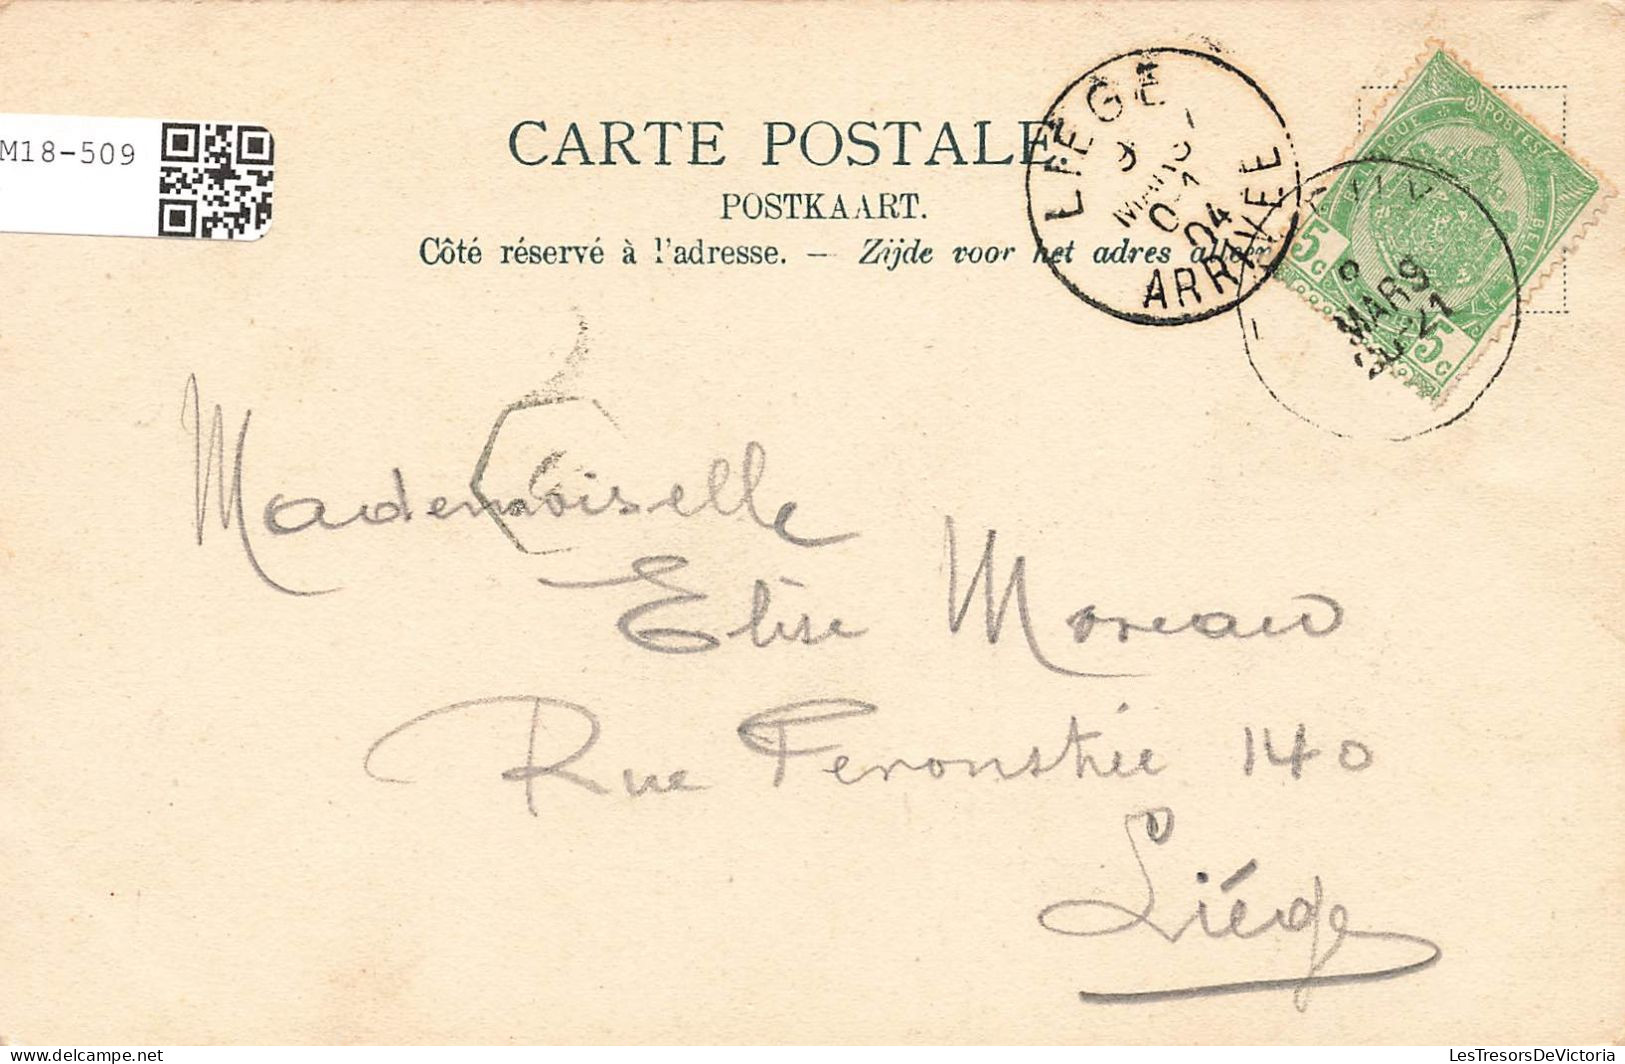 M18-509
CARTE POSTALE
POSTKAART.
Côté réservé à l'adresse. — Zijde voor het adres alleen
LIEGE
9
MARS
04
ARRIVÉE
BELGIQUE POSTES
5c 5c
9
MARS
Mademoiselle
Elise Moreau
Rue Feronstrée 140
Liége
LesTresorsDeVictoria